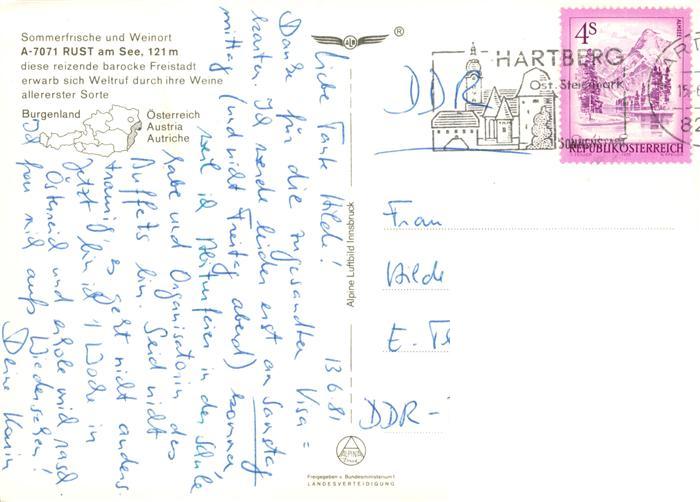 Sommerfrische und Weinort
A-7071 RUST am See, 121 m
diese reizende barocke Freistadt
erwarb sich Weltruf durch ihre Weine
allererster Sorte
Burgenland
Österreich
Austria
Autriche
13.6.81
Liebe Tante Hilde!
Danke für die zugesandten Visa=
karten. Ich werde leider erst am Samstag
mittag (und nicht Freitag abend) kommen
weil ich Abiturfeier in der Schule
habe und Organisatorin des
Buffets bin. Seid nicht
traurig, es geht nicht anders.
Jetzt bin ich 1 Woche in
Österreich und erhole mich rasch.
Ich freu mich aufs Wiedersehen!
Deine Karin
Alpine Luftbild Innsbruck
®
DDR
HARTBERG
Ost. Steiermark
4S
REPUBLIK ÖSTERREICH
Frau
Hilde
E. Ts
DDR -
ALPINE
Freigegeben v. Bundesministerium f.
LANDESVERTEIDIGUNG